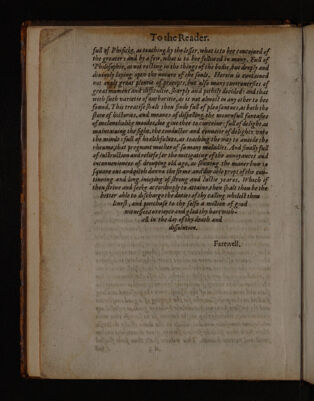 To the Reader.
full of Phisicke, as teaching by the lesser, what is to bee conceiued of
the greater: and by a few, what is to bee followed in many. Full of
Philosophie, as not resting in the things of the bodie, but deeply and
diuinely laying open the nature of the soule. Herein is contained
not onely great plentie of precepts, but also many controuersies of
great moment and difficultie, sharply and pithily decided: and that
with such varietie of authoritie, as is not almost in any other to bee
found. This treatise shalt thou finde full of pleasantnes, as both the
store of histories, and meanes of dispelling the mournfull fantasies
of melancholike moodes, doe giue thee to conceiue: full of delight, as
maintaining the sight, the conductor and conueier of delights vnto
the minde: full of healthfulnes, as teaching the way to auoide the
rheume, that pregnant mother of so many maladies. And finally full
of instruction and reliefe for the mitigating of the annoyances and
inconueniences of drouping old age, as shewing the maner how to
square out and pitch downe the firme and durable props of the con-
tinuing and long inioying of strong and lustie yeares. Which if
thou striue and seeke accordingly to attaine, then shalt thou be the
better able to discharge the duties of thy calling whilest thou
liuest, and purchase to thy selfe a million of good
witnesses to reioyce and glad thy hart with-
all in the day of thy death and
dissolution.
Farewell.